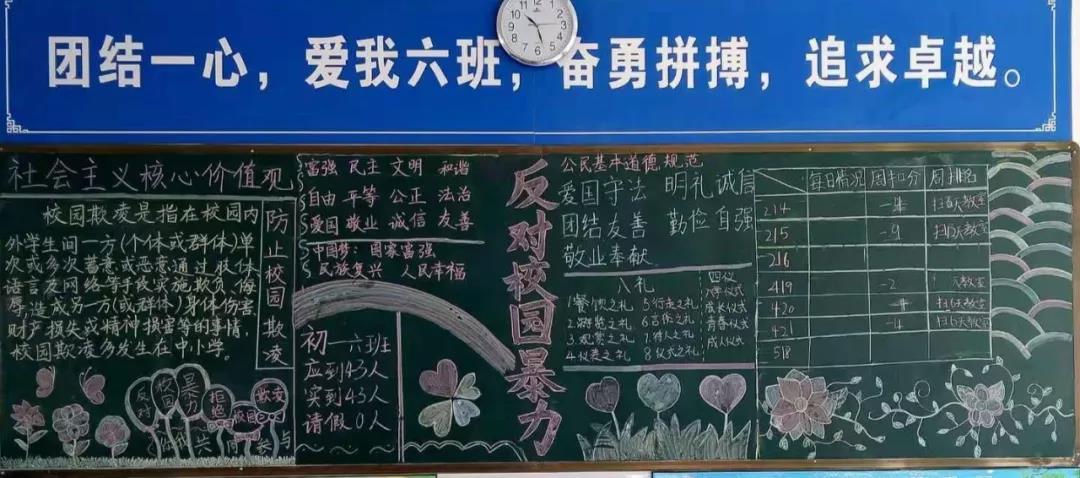 团结一心，爱我六班，奋勇拼搏，追求卓越。
社会主义核心价值观
校园欺凌是指在校园内
外学生间一方(个体或群体)单
次或多次蓄意或恶意通过肢体、
语言及网络等手段实施欺负、侮
辱，造成另一方(或群体)身体伤害、
财产损失或精神损害等的事情，
校园欺凌多发生在中小学。
防止校园欺凌
反对
校园
暴力
拒绝
校园
欺凌
共同参与
富强 民主 文明 和谐
自由 平等 公正 法治
爱国 敬业 诚信 友善
中国梦：国家富强
民族复兴 人民幸福
初一六班
应到43人
实到43人
请假0人
反对校园暴力
公民基本道德规范
爱国守法 明礼诚信
团结友善 勤俭自强
敬业奉献
八礼
1.餐饮之礼 5.行走之礼
2.游览之礼 6.言谈之礼
3.观赏之礼 7.待人之礼
4.仪表之礼 8.仪式之礼
四仪
入学仪式
成长仪式
青春仪式
成人仪式
每日情况 周扣分 周排名
214 -4
215 -9
216
419 -2
420
421 -4
518